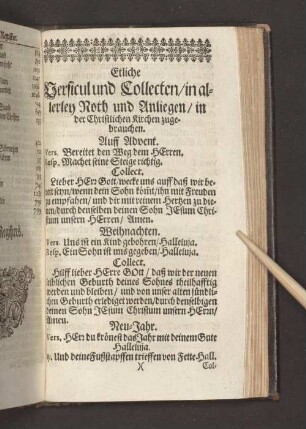 Etliche
Versicul und Collecten/in al-
lerley Noth und Anliegen/in
der Christlichen Kirchen zuge-
brauchen.
Auff Advent.
Vers. Bereitet den Weg dem HErren.
Resp. Machet seine Steige richtig.
Collect.
Lieber HErr Gott/wecke uns auff daß wir be-
reit seyn/wenn dein Sohn kömt/ihn mit Freuden
zu empfahen/und dir mit reinem Hertzen zu die-
nen/durch denselben deinen Sohn JEsum Chri-
stum unsern HErren/Amen.
Weihnachten.
Vers. Uns ist ein Kind gebohren/Halleluja.
Resp. Ein Sohn ist uns gegeben/Halleluja.
Collect.
Hilff lieber HErre GOtt/daß wir der neuen
leiblichen Geburth deines Sohnes theilhafftig
werden und bleiben/und von unser alten sündli-
chen Geburth erlediget werden/durch denselbigen
deinen Sohn JEsum Christum unsern HErrn/
Amen.
Neu-Jahr.
Vers. HErr du krönest das Jahr mit deinem Gute
Halleluja.
Und deine Fußstapffen trieffen von Fette Hall.
X
Col-
Register.